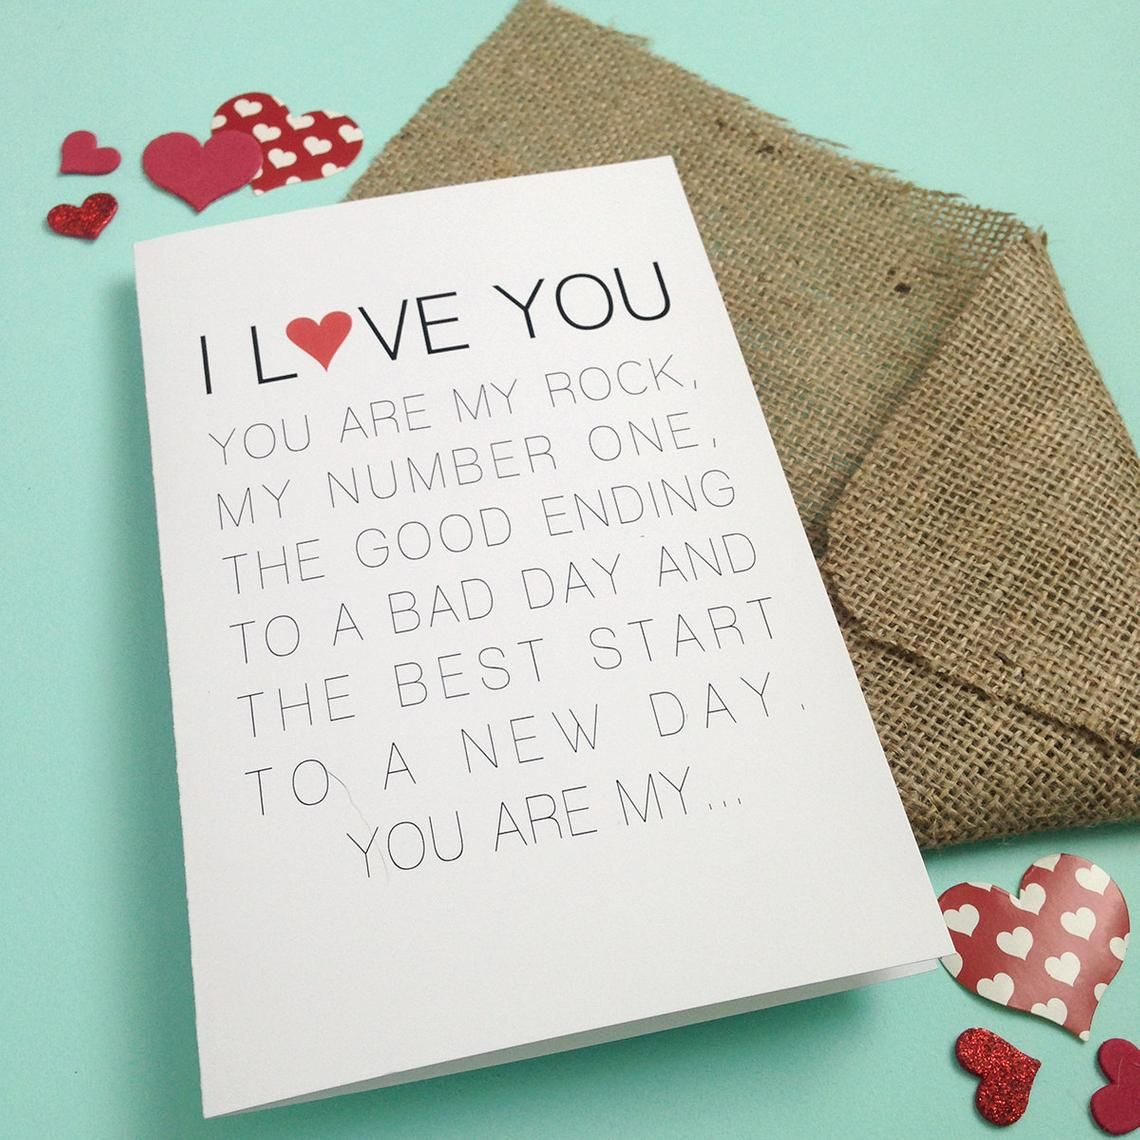 I L♥VE YOU
YOU ARE MY ROCK,
MY NUMBER ONE,
THE GOOD ENDING
TO A BAD DAY AND
THE BEST START
TO A NEW DAY.
YOU ARE MY...